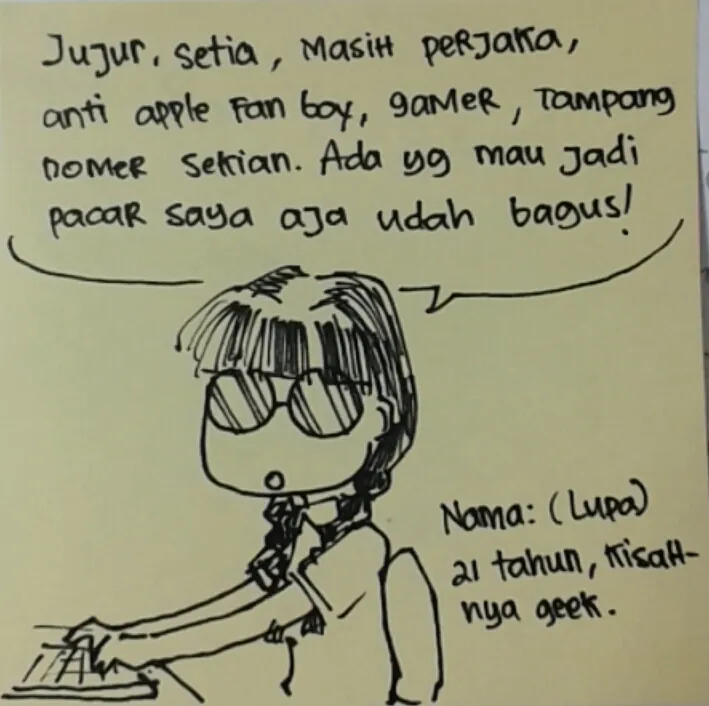 Jujur, setia, masih perjaka,
anti apple fan boy, gamer, tampang
nomer sekian. Ada yg mau jadi
pacar saya aja udah bagus!
Nama: (Lupa)
21 tahun, kisah-
nya geek.